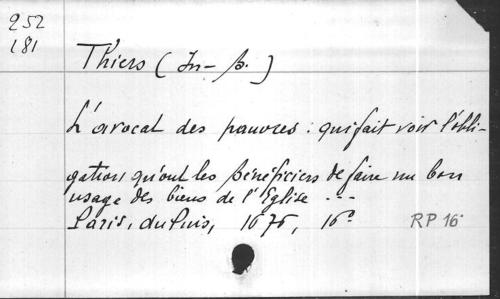 252
181
Thiers (Jn-B.)
L'avocat des pauvres : qui fait voir l'obli-
gation qu'ont les bénéficiers de faire un bon
usage des biens de l'Eglise ...
Paris, du Puis, 1676, 16°
RP 16°